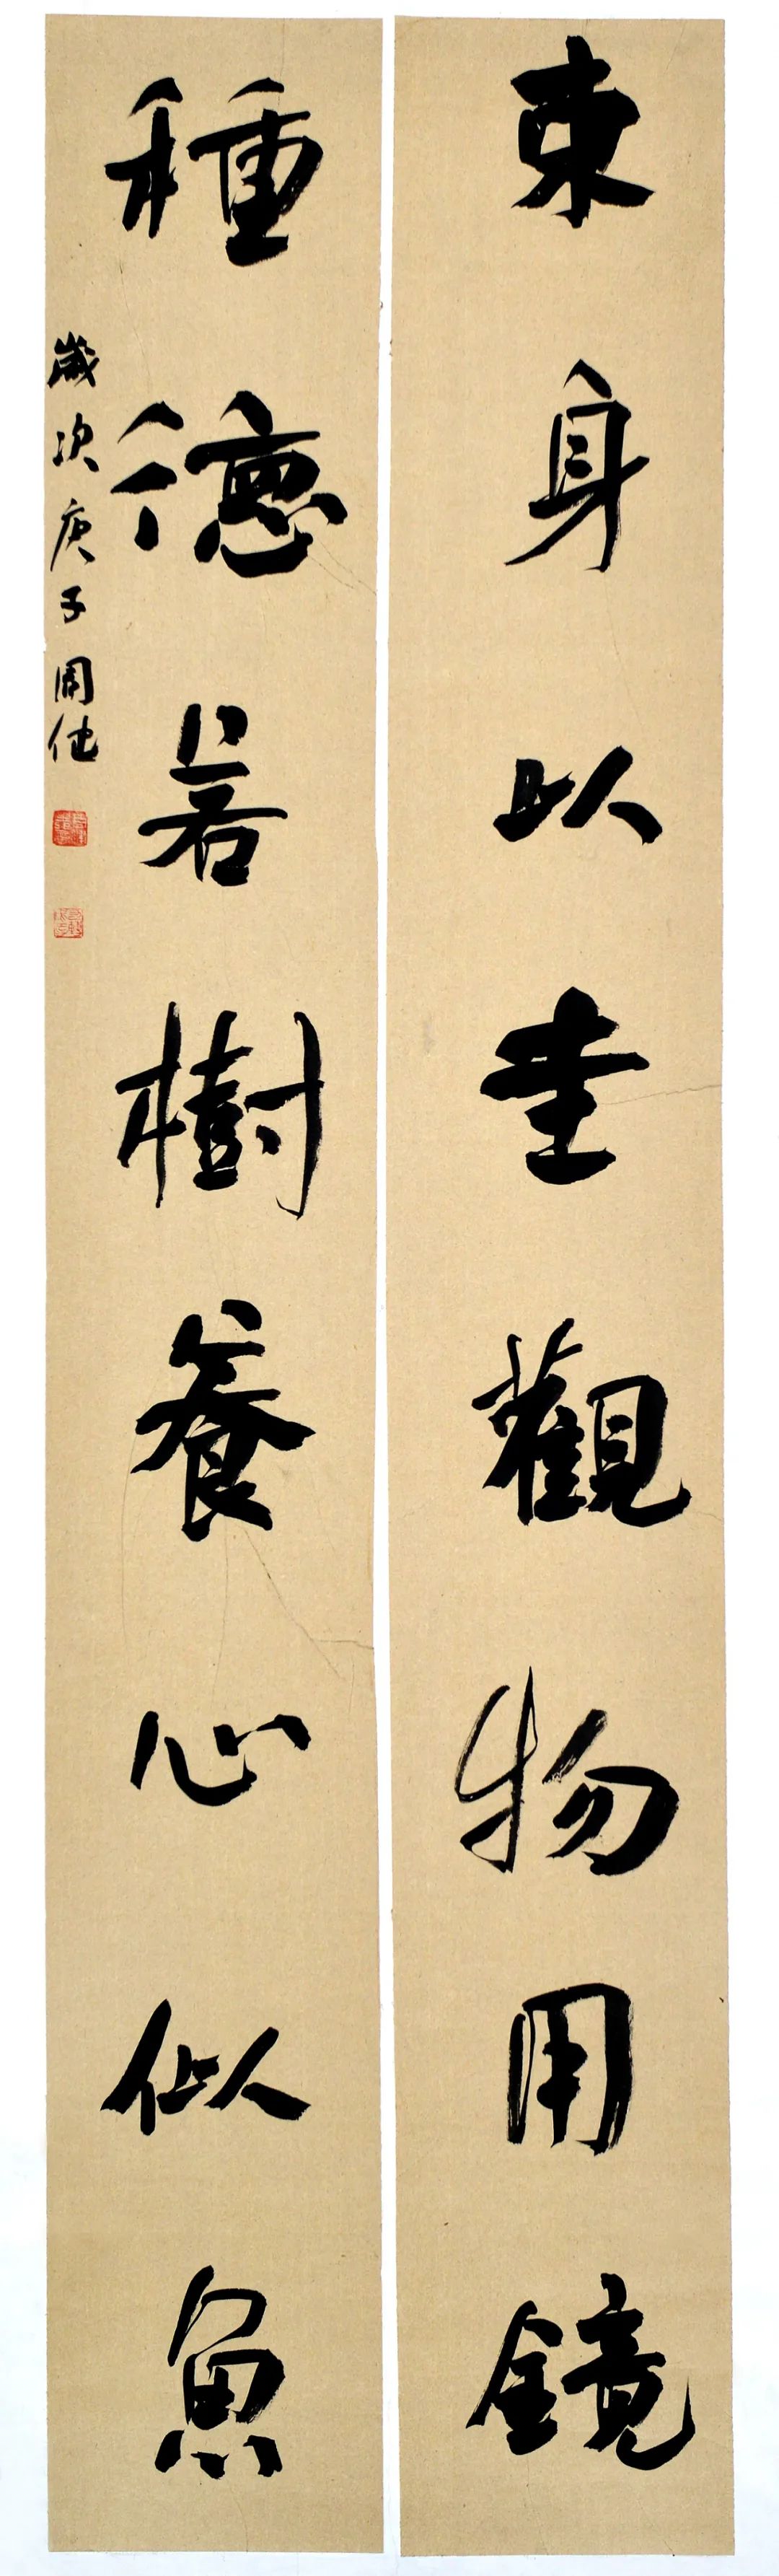 束身以圭觀物用鏡
種德若樹養心似魚
歲次庚子周佗